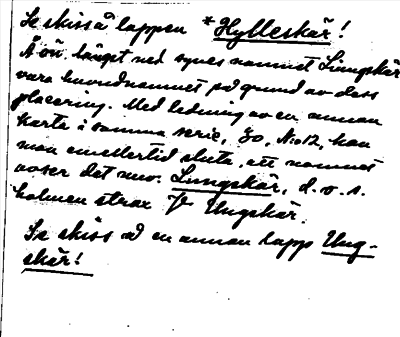 Se skiss å lappen *Hylleskär!
Å ön längst ned synes namnet Liungskär
vara huvudnamnet på grund av dess
placering. Med ledning av en annan
karta i samma serie, Go, N:o 12, kan
man emellertid sluta, att namnet
avser det nuv. Lungskär, d.v.s.
holmen strax Ungskär.
Se skiss å en annan lapp Ung-
skär!